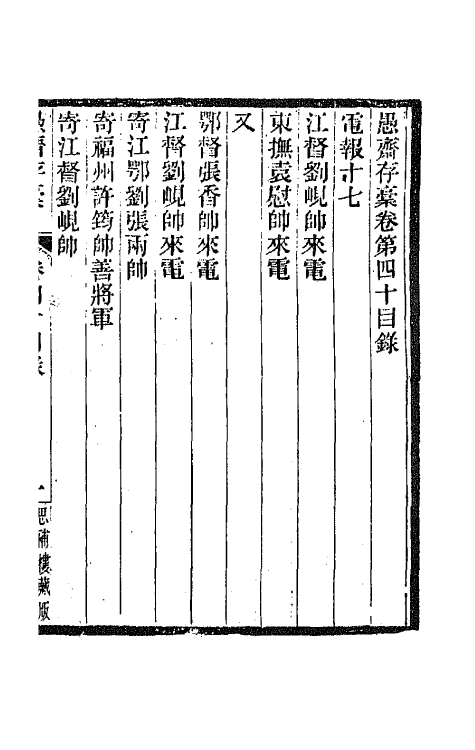 愚齋存藁卷第四十目錄
電報十七
江督劉峴帥來電
東撫袁慰帥來電
又
鄂督張香帥來電
江督劉峴帥來電
寄江鄂劉張兩帥
寄福州許筠帥善將軍
寄江督劉峴帥
愚齋存藁 卷四十目錄 一 思補樓藏版